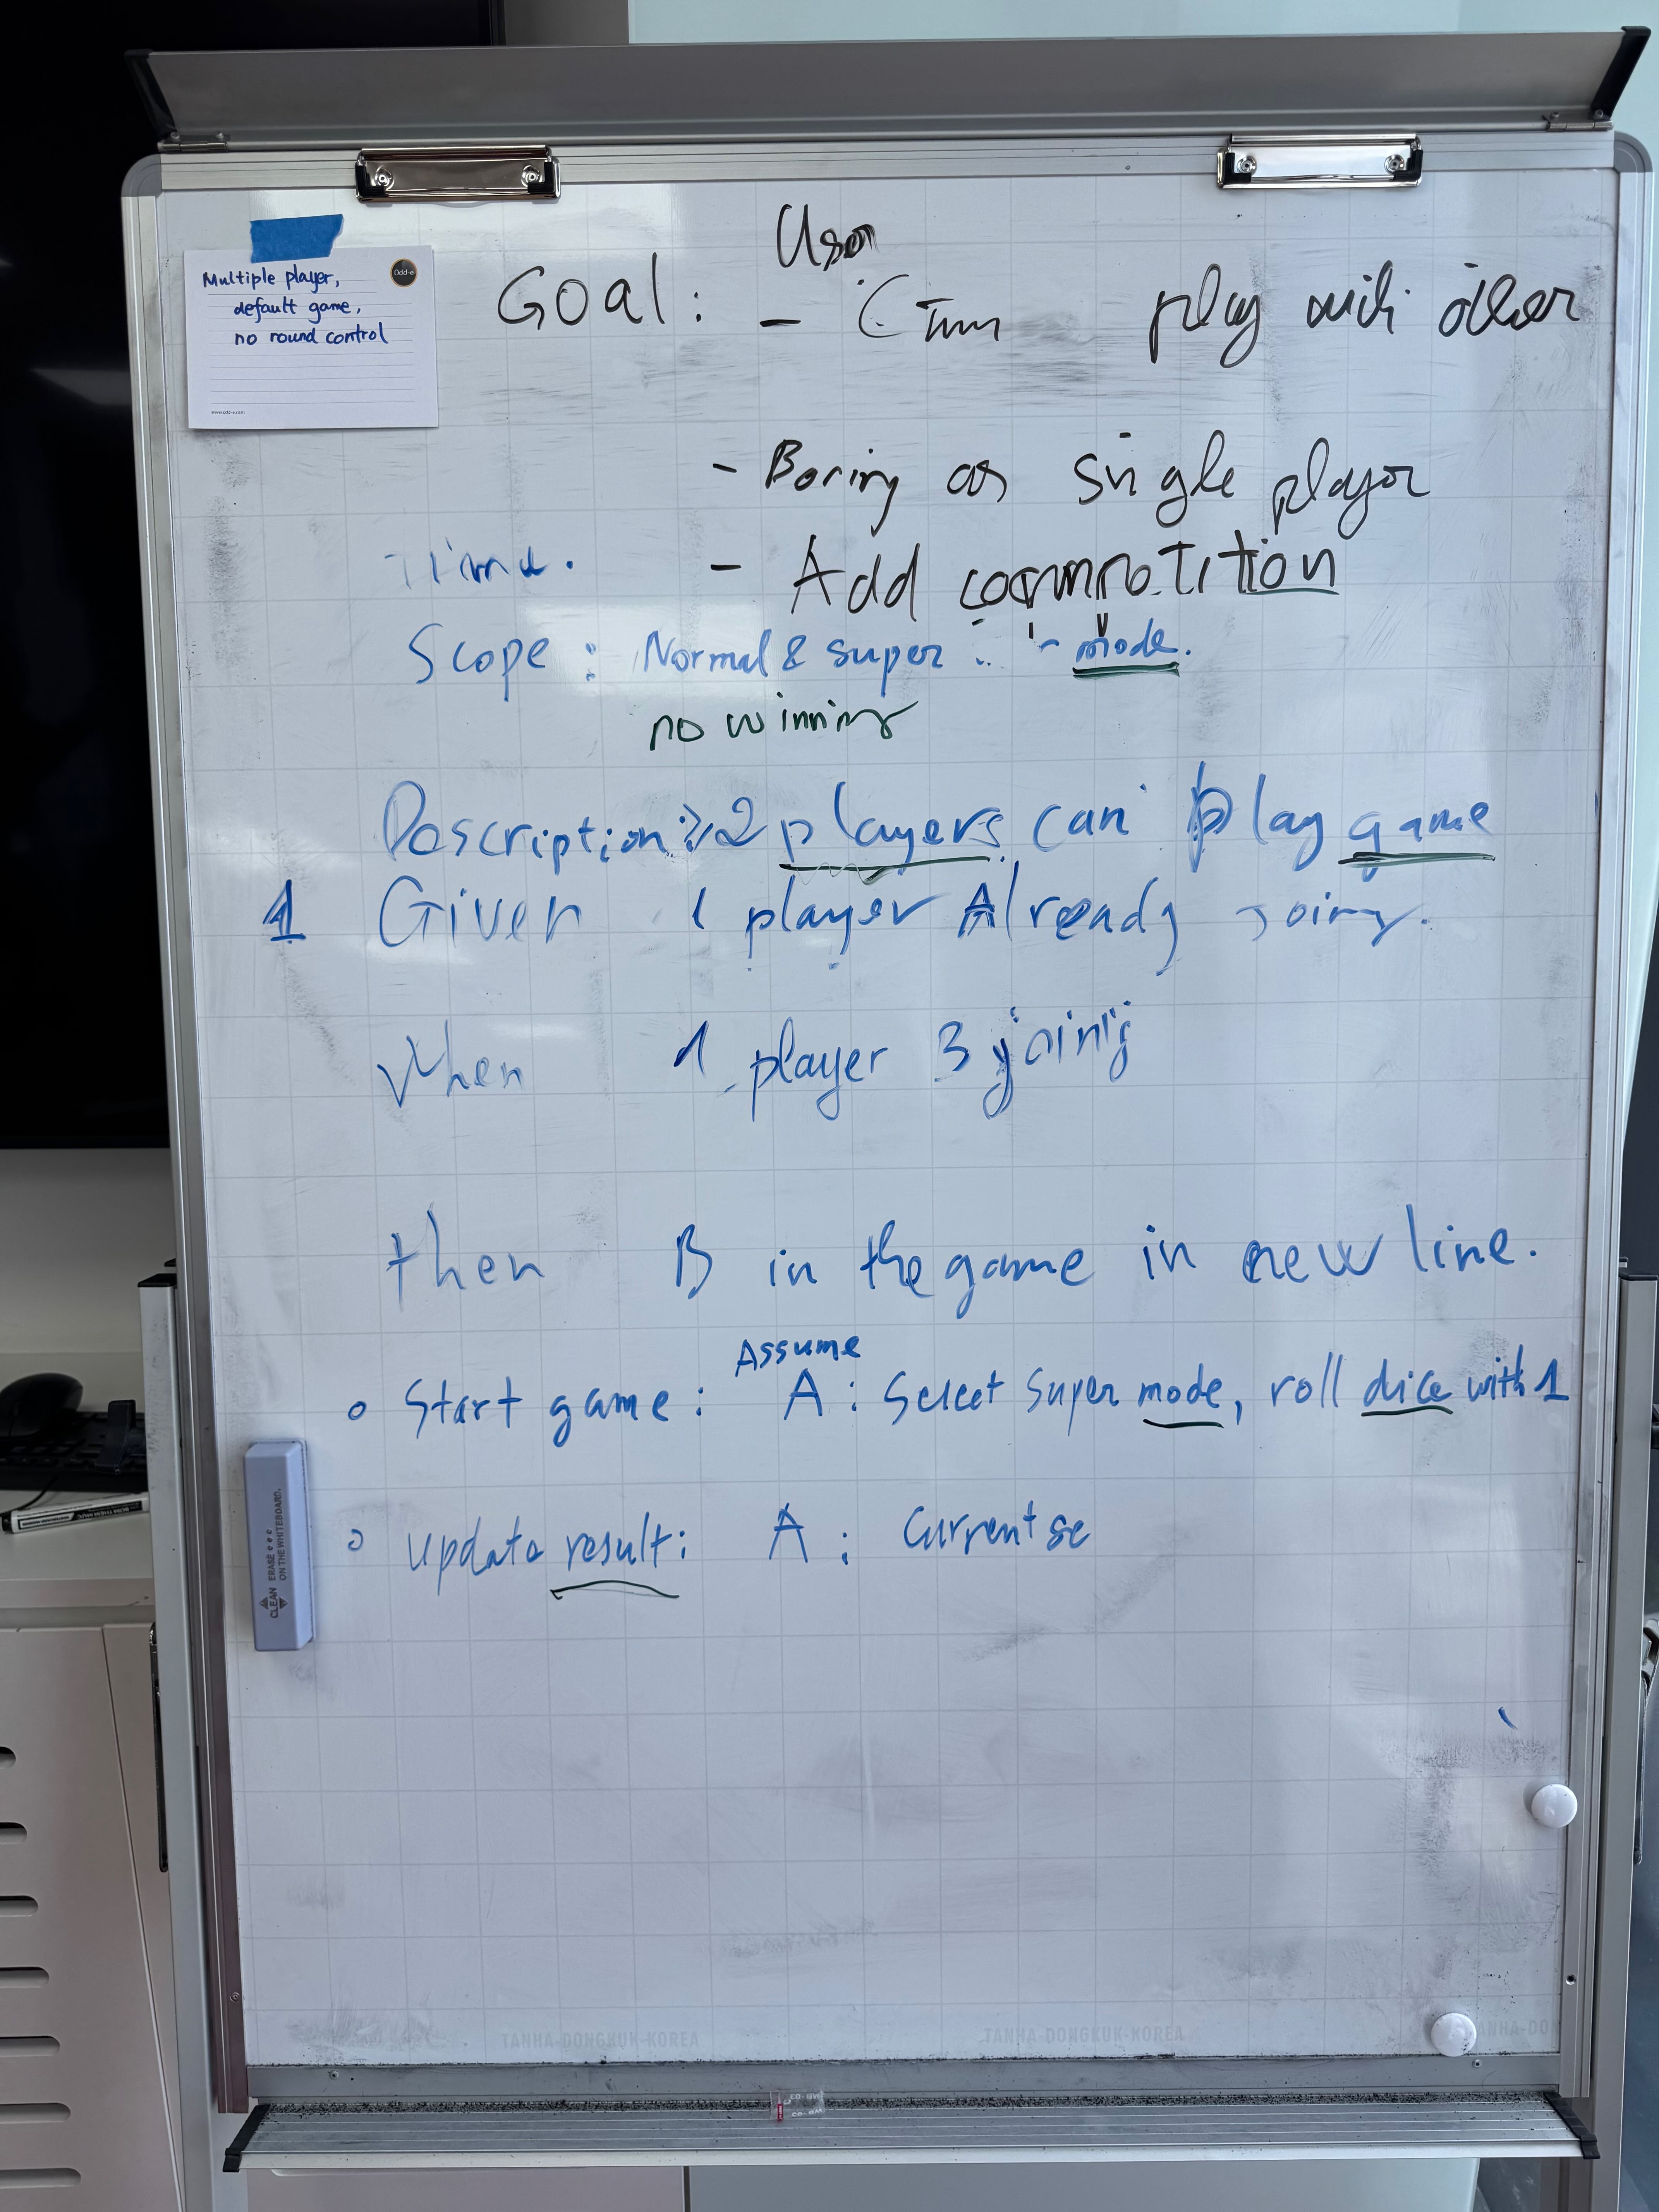 Multiple player,
default game,
no round control
Odd-e
www.odd-e.com
User
Goal: - play with other
- Boring as single player
Time.
- Add
Scope: Normal & super mode.
no winning
Description: ≥2 players can play game
1 Given 1 player Already joing.
When 1 player B joining
then B in the game in new line.
Assume
o Start game: A: Select Super mode, roll dice with 1
o update result: A: Current sc
CLEAN ERASE
ON THE WHITEBOARD.
TANHA-DONGKUK-KOREA TANHA-DONGKUK-KOREA ANHA-DON